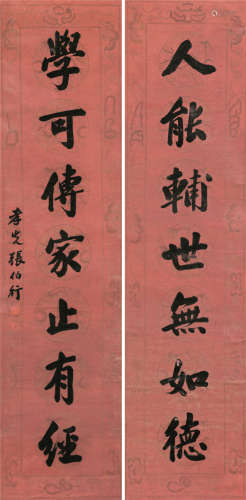 人能輔世無如德
學可傳家止有經
孝先張伯行